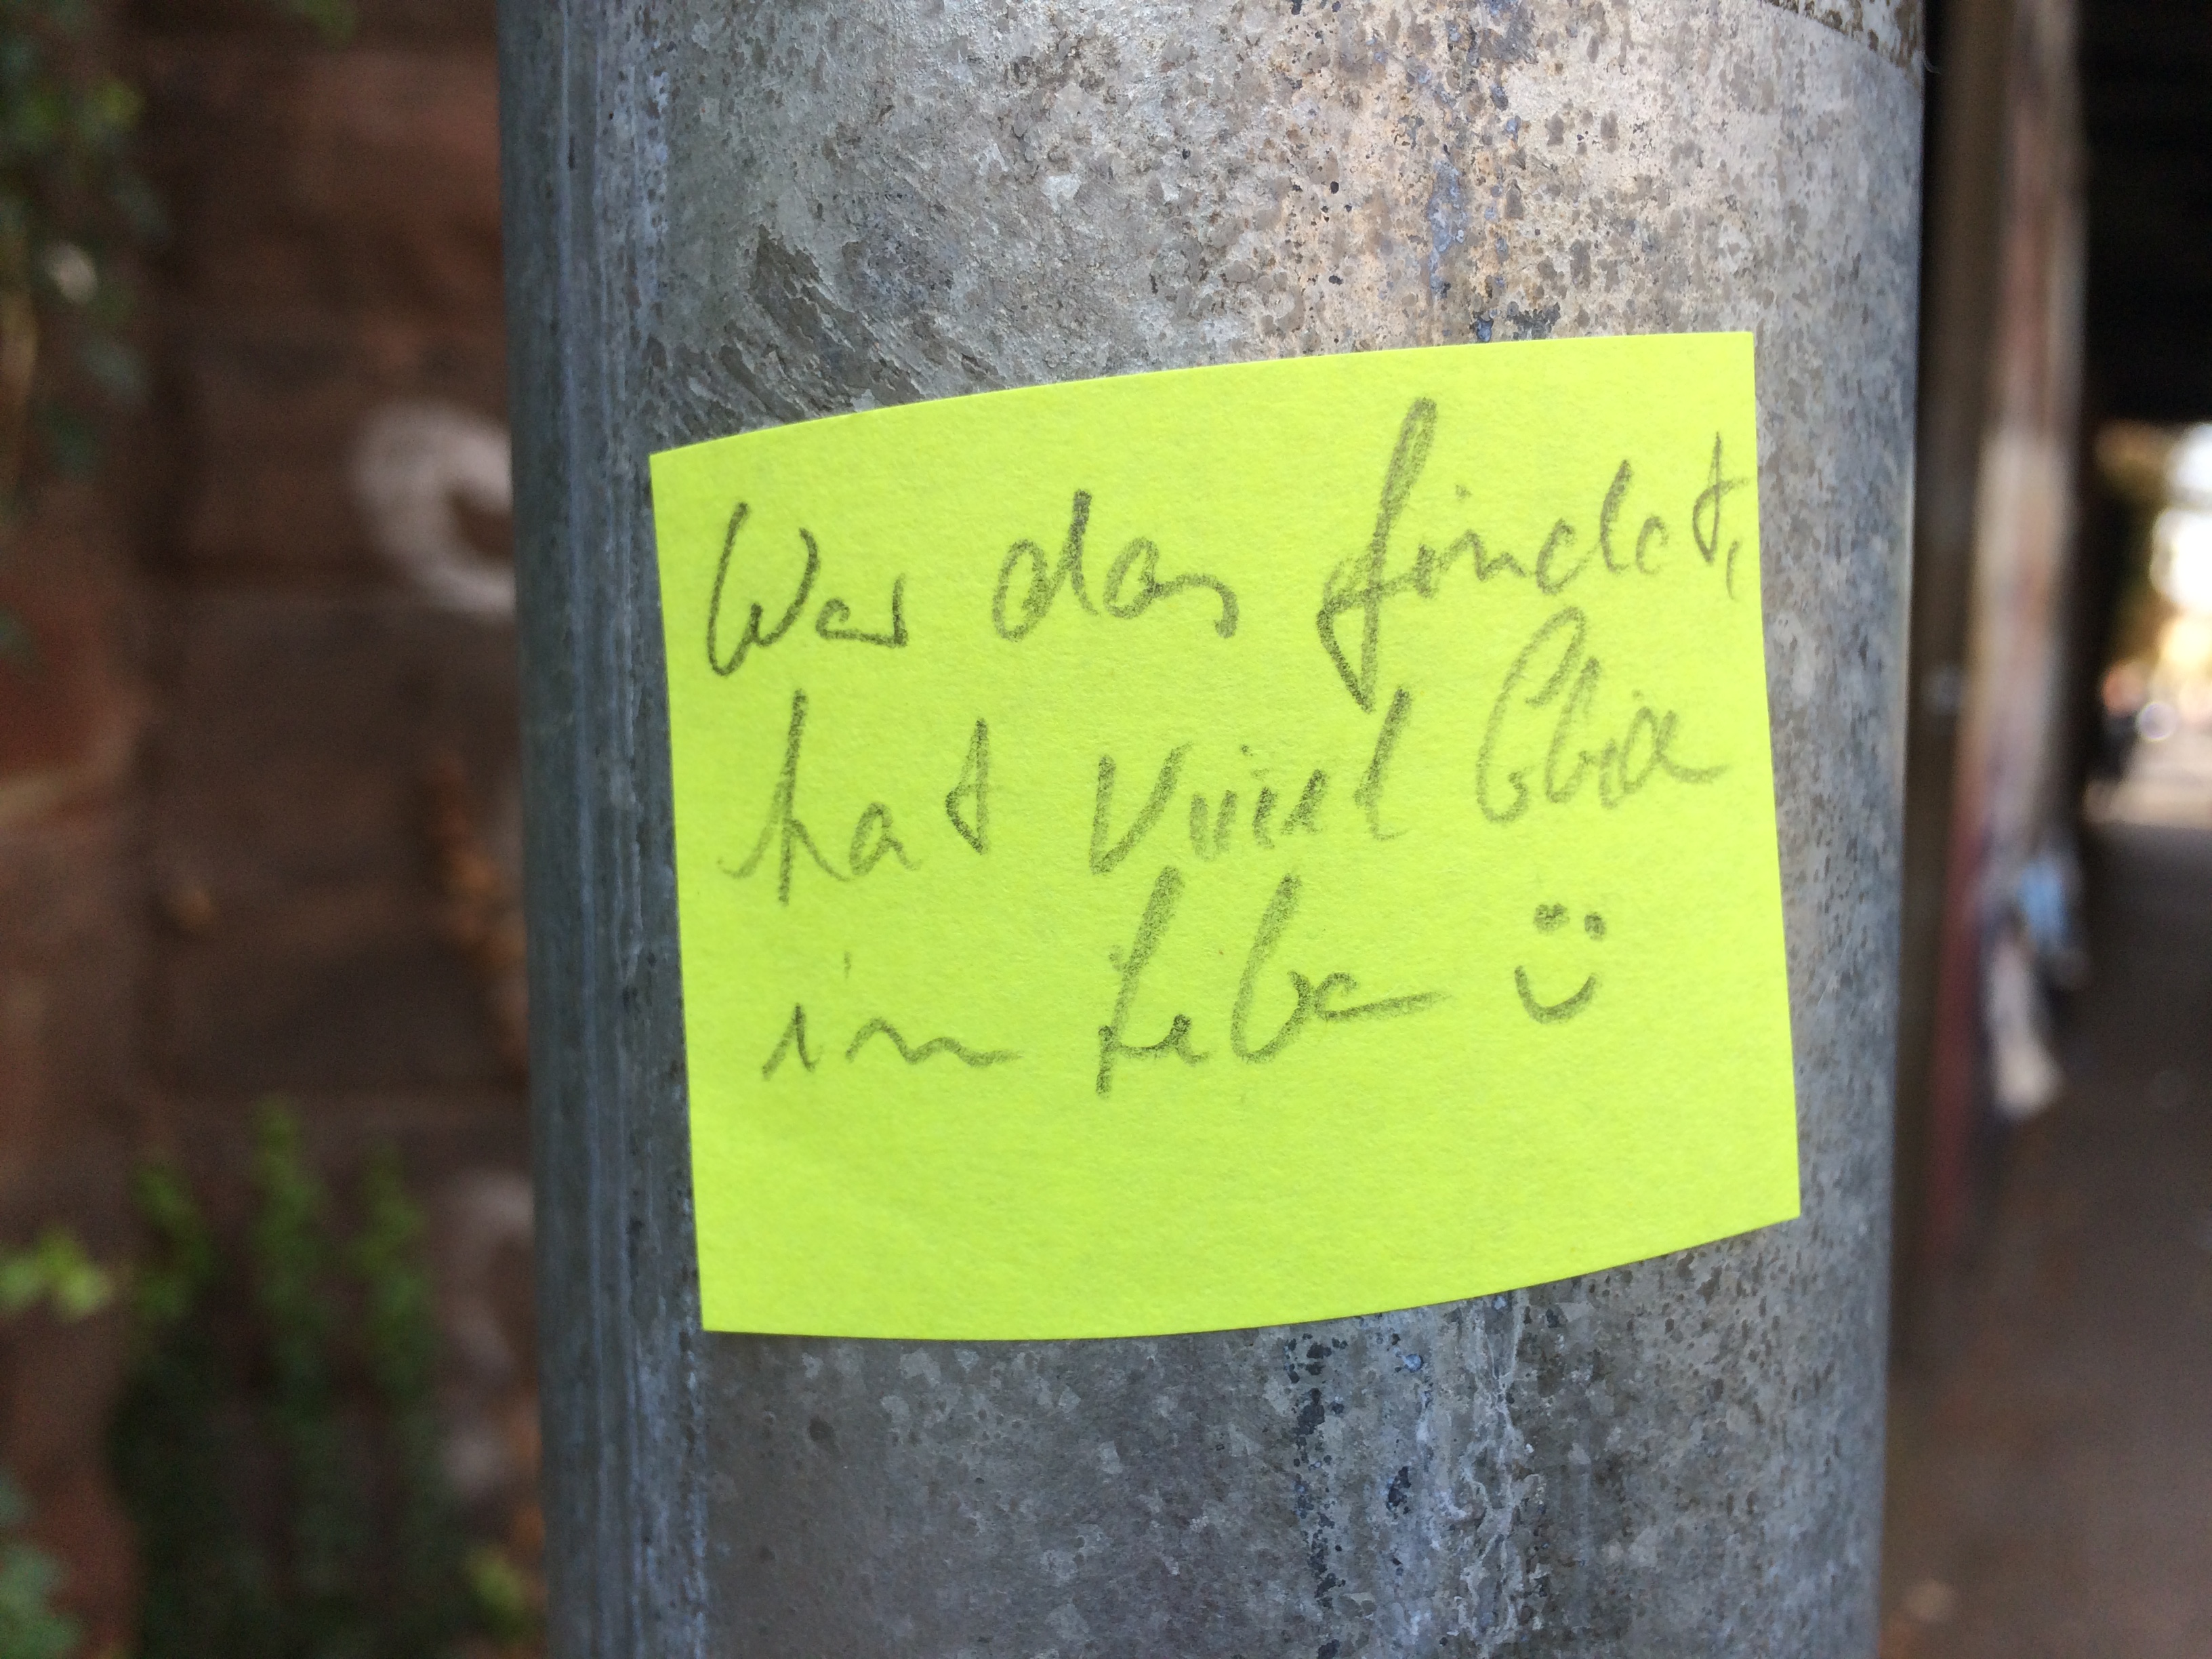 Wer das findet,
hat viiiel Glück
im Leben :)